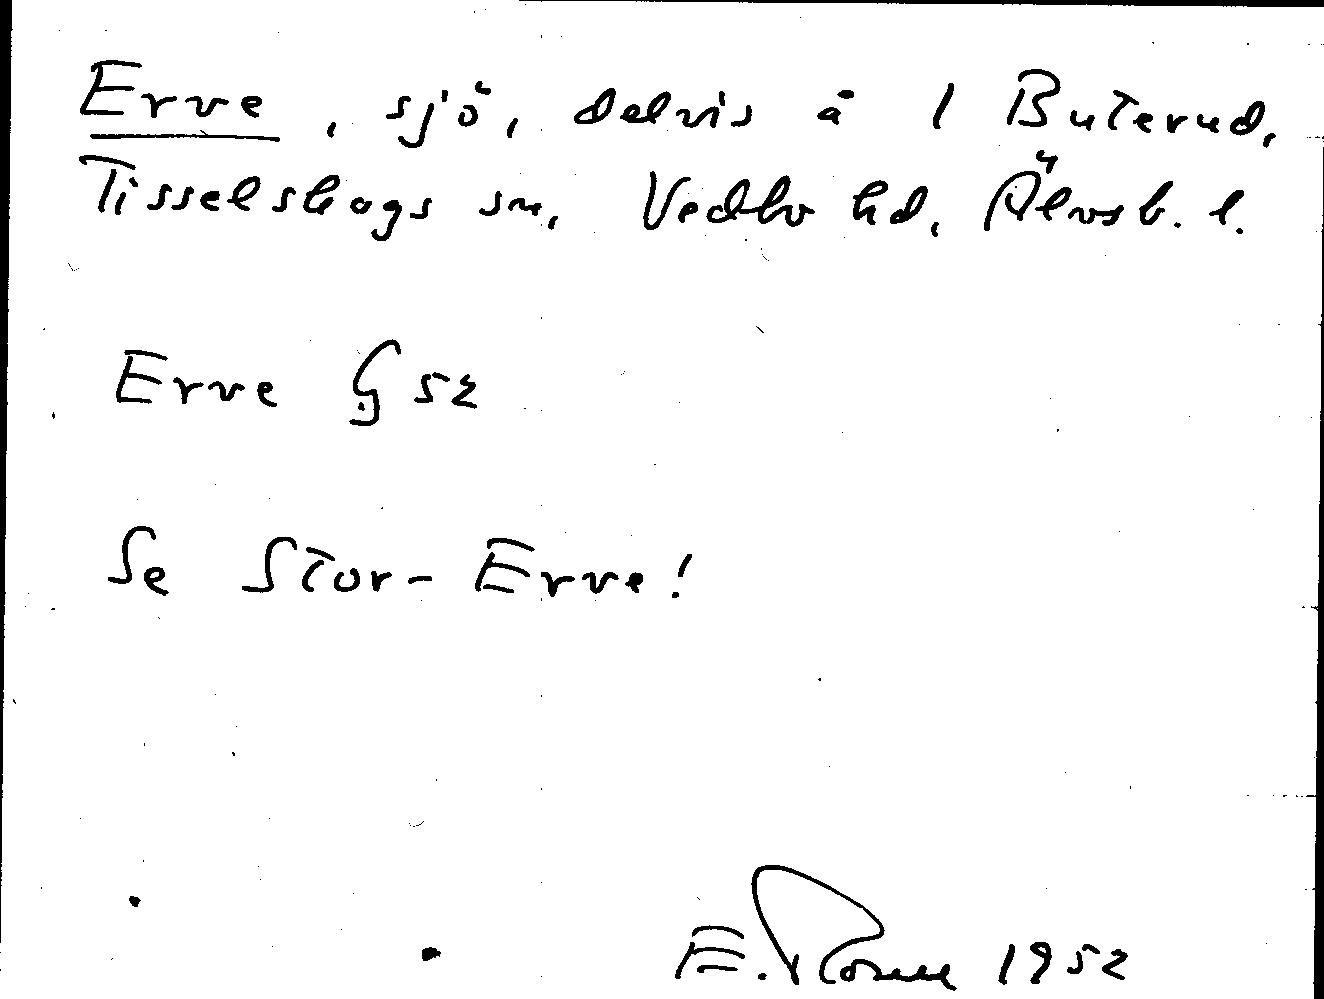 Erve, sjö, delvis å 1 Buterud,
Tisselskogs sn, Vedbo hd, Älvsb. l.
Erve G 52
Se Stor-Erve!
E. Rosell 1952